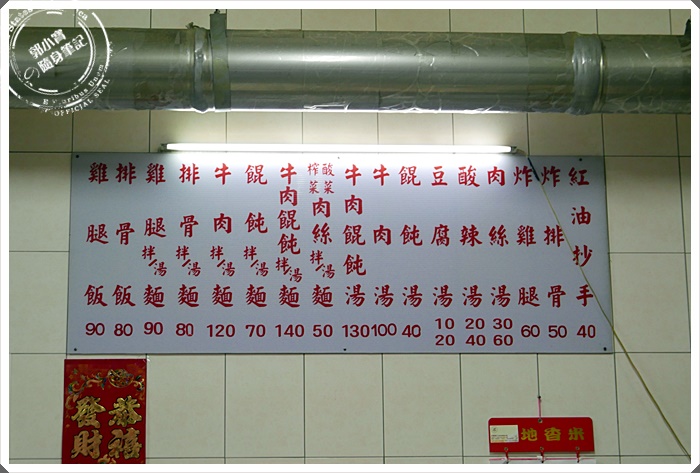 郭小寶
の隨身筆記
E Pluribus Unum
OFFICIAL SEAL
雞腿飯 90
排骨飯 80
雞腿拌/湯麵 90
排骨拌/湯麵 80
牛肉拌/湯麵 120
餛飩拌/湯麵 70
牛肉餛飩拌/湯麵 140
榨菜酸菜肉絲拌/湯麵 50
牛肉餛飩湯 130
牛肉湯 100
餛飩湯 40
豆腐湯 10 20
酸辣湯 20 40
肉絲湯 30 60
炸雞腿 60
炸排骨 50
紅油抄手 40
恭禧
發財
地香米